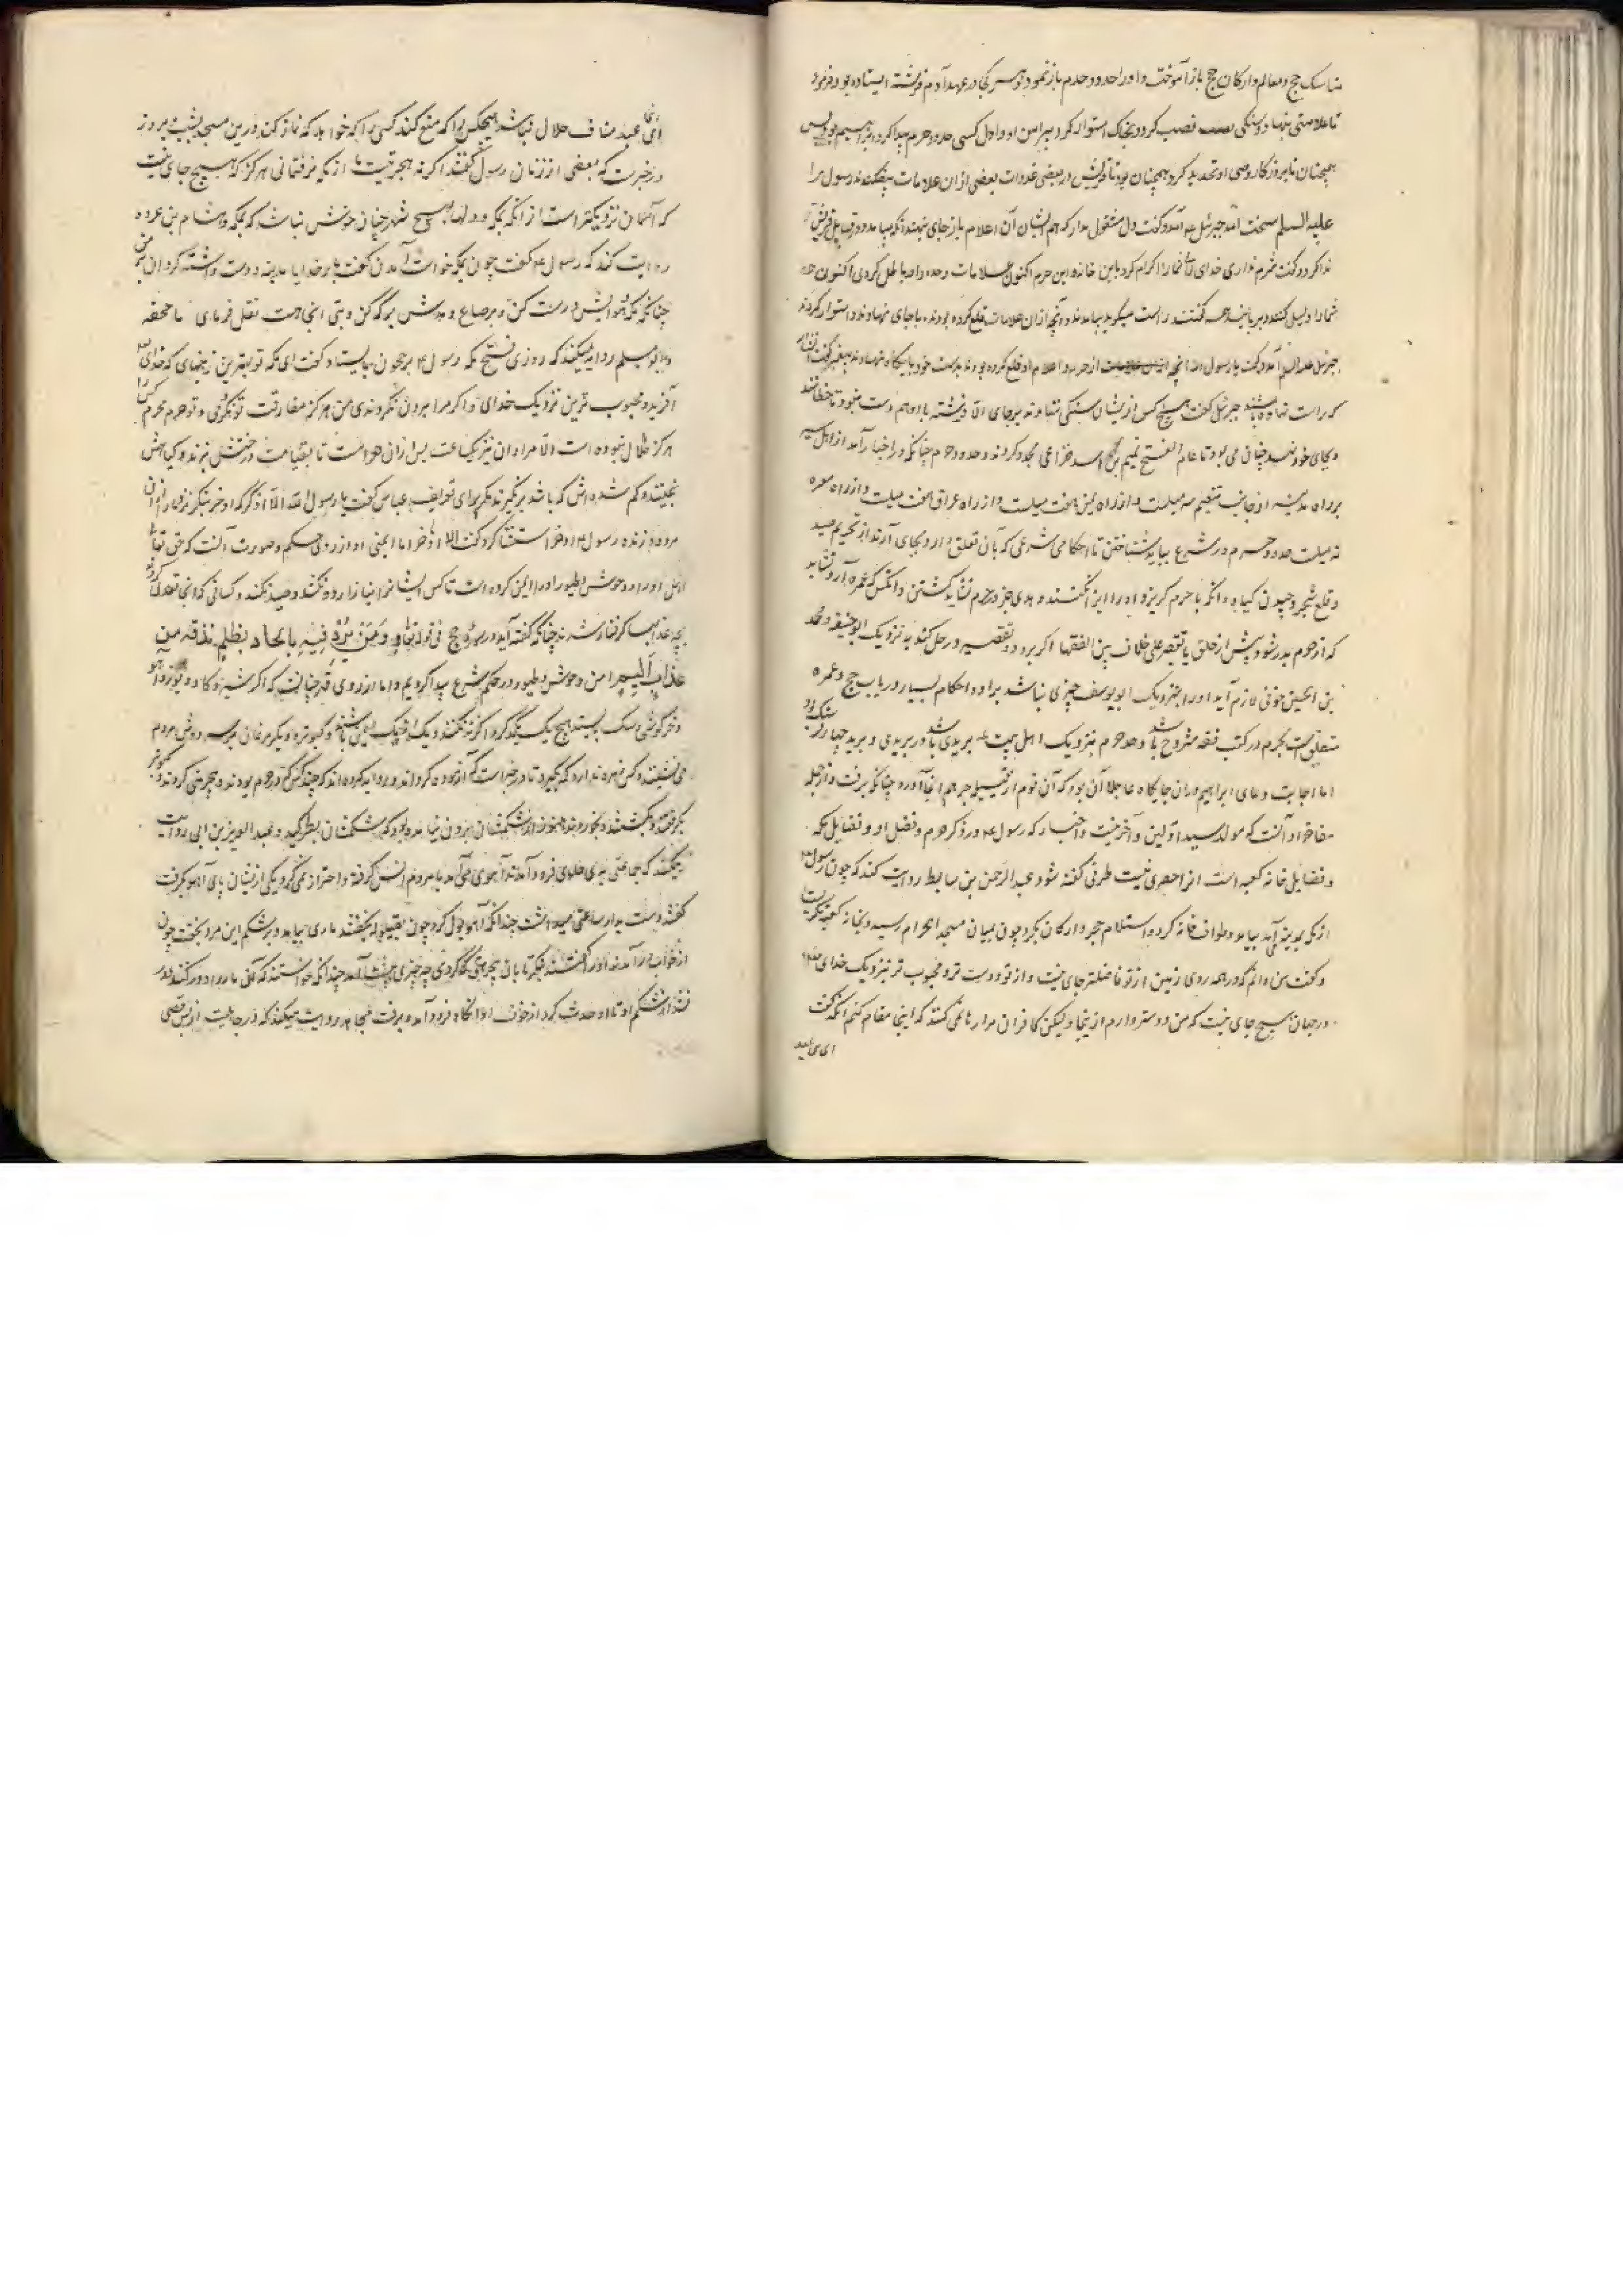 مناسک حج و معالم و ارکان حج باز آموخت و او را حدود حرم باز نمود و هر کجا در عهد آدم فرشته ایستاده بود فرمود
تا علامتی بنهاد و سنکی نصب کرد و بخاک استوار کرد پیرامن او و اول کسی حدود حرم پیدا کرد ابراهیم بود پس
همچنان تا بروزکار قصی او تجدید کرد همچنان بود تا قریش در بعضی غزوات بعضی ازان علامات بیفکندند رسول را
علیه السلم سخت آمد جبرئیل آمد و کفت دل مشغول مدار که هم ایشان آن اعلام باز جای نهند آنکه بیامد و در قبایل قریش
ندا کرد و کفت شرم نداری خدای تعالی شما را اکرام کرد باین خانه و این حرم اکنون علامات و حدود او باطل کردی اکنون همه
شما را ذلیل کنند و بربایند همه کفتند راست میکوید بیامدند و آنچه ازان علامات قلع کرده بودند با جای نهادند و استوار کردند
جبرئیل علیه السلم آمد و کفت یا رسول الله آنچه از حرم و اعلام او قلع کرده بودند بدست خود با جایکاه نهادند پیغمبر کفت
که راست نهاده باشند جبرئیل کفت هیچ کس ازیشان سنکی ننهادند بر جای الا و فرشته با او هم دست نبود تا خطا نکند
و بجای خود نهد چنانی می بود تا عام الفتح تمیم بن اسد خزاعی مجدد کردند و حدود حرم چنانکه در اخبار آمد از اهل سیر
بر راه مدینه از جانب تنعیم سه میلست و از راه یمن هفت میلست و از راه عراق هفت میلست و از راه
نه میلست حدود حرم در شرع بباید شناختن تا احکامی شرعی که بآن تعلق دارد بجای آرند از تحریم صید
و قلع شجر و چیدن کیاه و آنکه با حرم کریزد او را ایمن کنند و هدی جز در حرم نشاید کشتن و آنکس که عمره آرد نشاید
که از حرم بدر شود پیش از حلق یا تقصیر علی خلاف بین الفقها اکر برود و تقصیر در حل کند به نزدیک ابو حنیفه و محمد
بن الحسن خونی لازم آید او را و بنزدیک ابو یوسف چیزی نباشد بر او و احکام بسیار در باب حج و عمره
متعلق است بحرم در کتب فقه مشروح باشد و حد حرم بنزدیک اهل بیت بریدی باشد در بریدی و برید چهار فرسنک بود
اما اجابت دعای ابراهیم دران جایکاه عاجلا آن بود که آن قوم از قبیله جرهم آنجا آورد چنانکه برفت و از جمله
مفاخر او آنست که مولد سید اولین و آخرینست و اخبار که رسول در ذکر حرم و فضل او و فضایل مکه
و فضایل خانه کعبه است انرا حصری نیست طرفی کفته شود عبد الرحمن بن سابط روایت کند که چون رسول
از مکه بمدینه آید بیامد و طواف خانه کرد و استلام حجر و ارکان بکرد چون بمیان مسجد الحرام رسید و بخانه کعبه نکریست
و کفت من دانم که در همه روی زمین از تو فاضلتر جای نیست و از تو دوست تر و محبوب تر بنزدیک خدای
در جهان هیچ جای نیست که من دوستر دارم ازینجا و لیکن کافران مرا رها نمی کنند که اینجا مقام کنم آنکه کفت
ای بنی عبد
ای بنی عبد مناف حلال نباشد هیچکس را که منع کند کسی را که خواهد که نماز کند درین مسجد بشب و بروز
و در خبرست که بعضی از زنان رسول کفتند اکر نه هجرتست ما از مکه نرفتمانی هرکز که هیچ جای نیست
که آسمان نزدیکتر است از آنکه بمکه و دلها بهیچ شهر چنان خوش نباشد که بمکه و هشام بن عروه
روایت کند که رسول کفت چون بمکه خواست آمدن کفت بار خدایا مدینه دوست داشته کردان بمن
چنانکه مکه و هوایش درست کن و بر صاع و مدش برکه کن و تبی اینجا هست نقل فرمای با جحفه
و ابو سلمه روایه میکند که روزی فتح مکه رسول بر حجون بایستاد و کفت ای مکه تو بهترین زمینهای که خدای
آفریده و محبوب ترین نزدیک خدای و اکر مرا بیرون نکردندی من هرکز مفارقت تو نکردمی و تو حرم محرم کس را
هرکز حلال نبوده است الا مرا و ان نیز یکساعت پس ازان حرامست تا بقیامت درختش نبرند و کیاهش
نچینند و کم شده اش که باشد برنکیرند مکر برای تعریف عباس کفت یا رسول الله الا اذخر که
مرده و زنده رسول اذخر استثنا کرد کفت الا اذخر اما ایمنی او از روی حکم و صورت آنست که حق تعالی
اهل او را و وحوش و طیور او را ایمن کرده است تا کس ایشانرا نیازارد و نکشد و صید نکند و کسانی که آنجا تعدی کردند
بچه عذابها کرفتار شدند چنانکه کفته آید در سوره حج فی قوله تعالی وَمَن یُرِد فِیهِ بِاِلحادٍ بِظُلمٍ نُذِقهُ مِن
عَذابٍ اَلیمٍ امن وحوش و طیور در حکم شرع پیدا کردیم و اما از روی قدر چنانست که اکر شیر و کاو و یوز و آهو
و خرکوش و سک بهم بایستند هیچ یک دیکر را کزند نکنند و یک از دیک ایمن باشند و کبوتر و دیکر مرغان بر سر و دوش مردم
می نشینند و کس زهره ندارد که بکیرد تا در خبر است که آزموده کرداند و روایه کرده اند که چند کس در حرم بودند و بی حرمتی کردند کبوتر
بکرفتند و بکشتند و بخاوردند هنوز از شکمشان بیرون نیامده بود که شکمشان بطرکید و عبد العزیز بن ابی روایت
میکند که جماعتی بذی طوی فرود آمدند آهوی می آمد با مردم انس کرفته و احتراز نمی کرد یکی ازیشان پای آهو بکرفت
کفتند دست بدار ساعتی میداشت چندانکه آهو بول کرد چون بقیلوله بخفتند ماری بیامد و بر شکم این مرد بخفت چون
از خواب در آمدند او را کفتند بنکر تا بان بی حرمتی که کردی چه چیزی پیشت آمد چندانکه خواستند که آن مار را دور کنند دور
نشد از شکم او تا او حدث کرد از خوف او آنکاه فرود آمد و برفت مجاهد روایت میکند که در جاهلیت از پس قصی